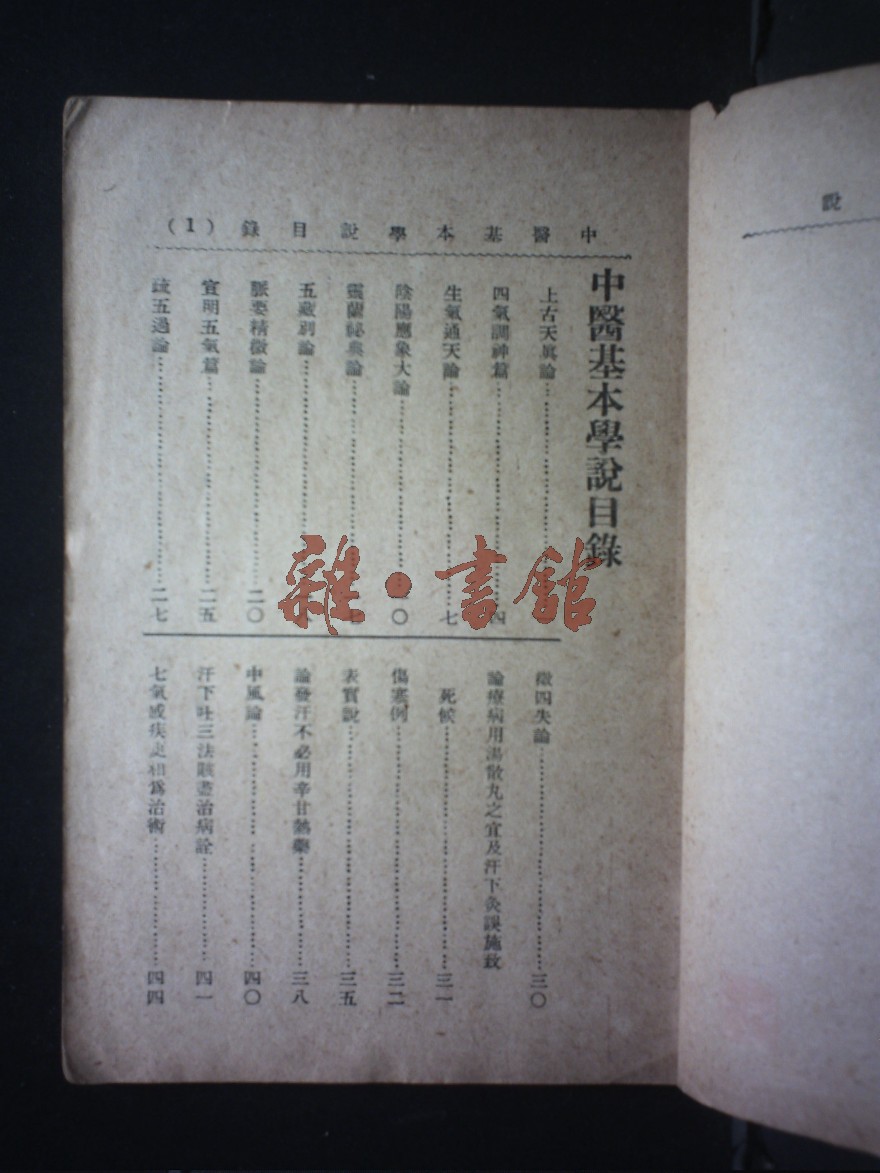 中醫基本學說目錄 (1)
中醫基本學說目錄
上古天眞論
四氣調神篇 四
生氣通天論 七
陰陽應象大論 〇
靈蘭祕典論
五藏別論
脈要精微論 二〇
宣明五氣篇 二五
疏五過論 二七
徵四失論 三〇
論療病用湯散丸之宜及汗下灸誤施致
死候 三一
傷寒例 三二
表實說 三五
論發汗不必用辛甘熱藥 三八
中風論 四〇
汗下吐三法賅盡治病詮 四一
七氣感疾更相爲治術 四四
說
雜·書館